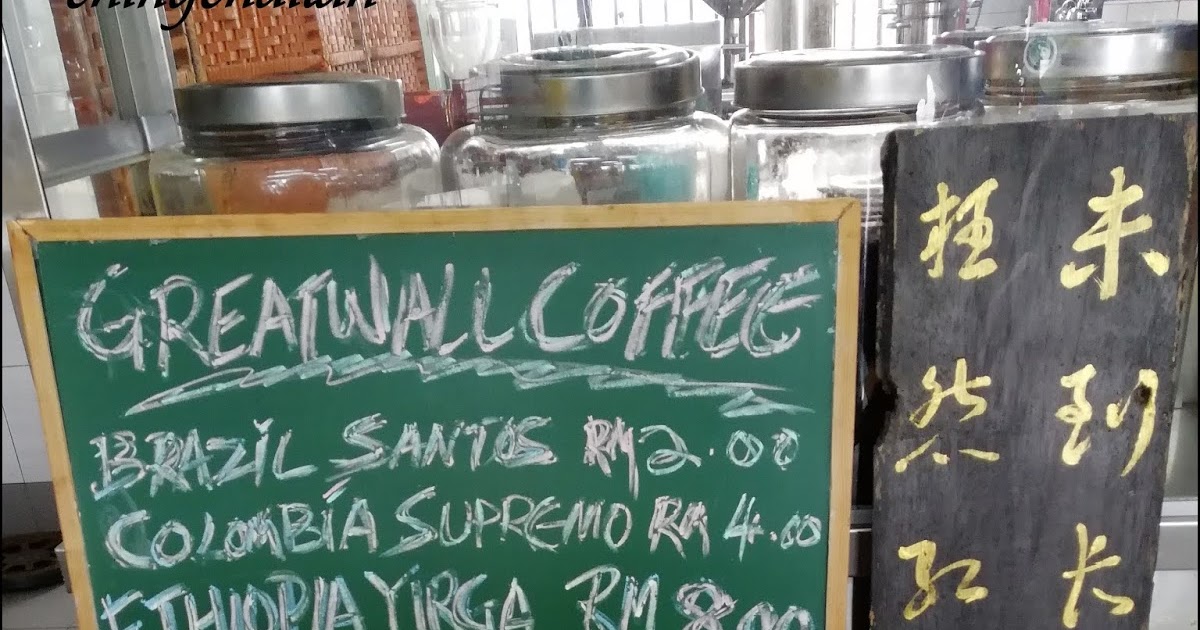 GREATWALL COFFEE
BRAZIL SANTOS RM 2.00
COLOMBIA SUPREMO RM 4.00
ETHIOPIA YIRGA RM 8.00
未到
枉然红